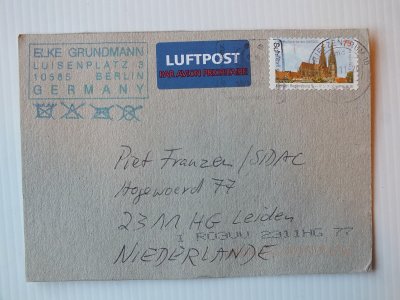 ELKE GRUNDMANN
LUISENPLATZ 3
10585 BERLIN
GERMANY
LUFTPOST
PAR AVION PRIORITAIRE
Piet Franzen/SIDAC
Hogewoerd 77
2311 HG Leiden
2311HG 77
NIEDERLANDE